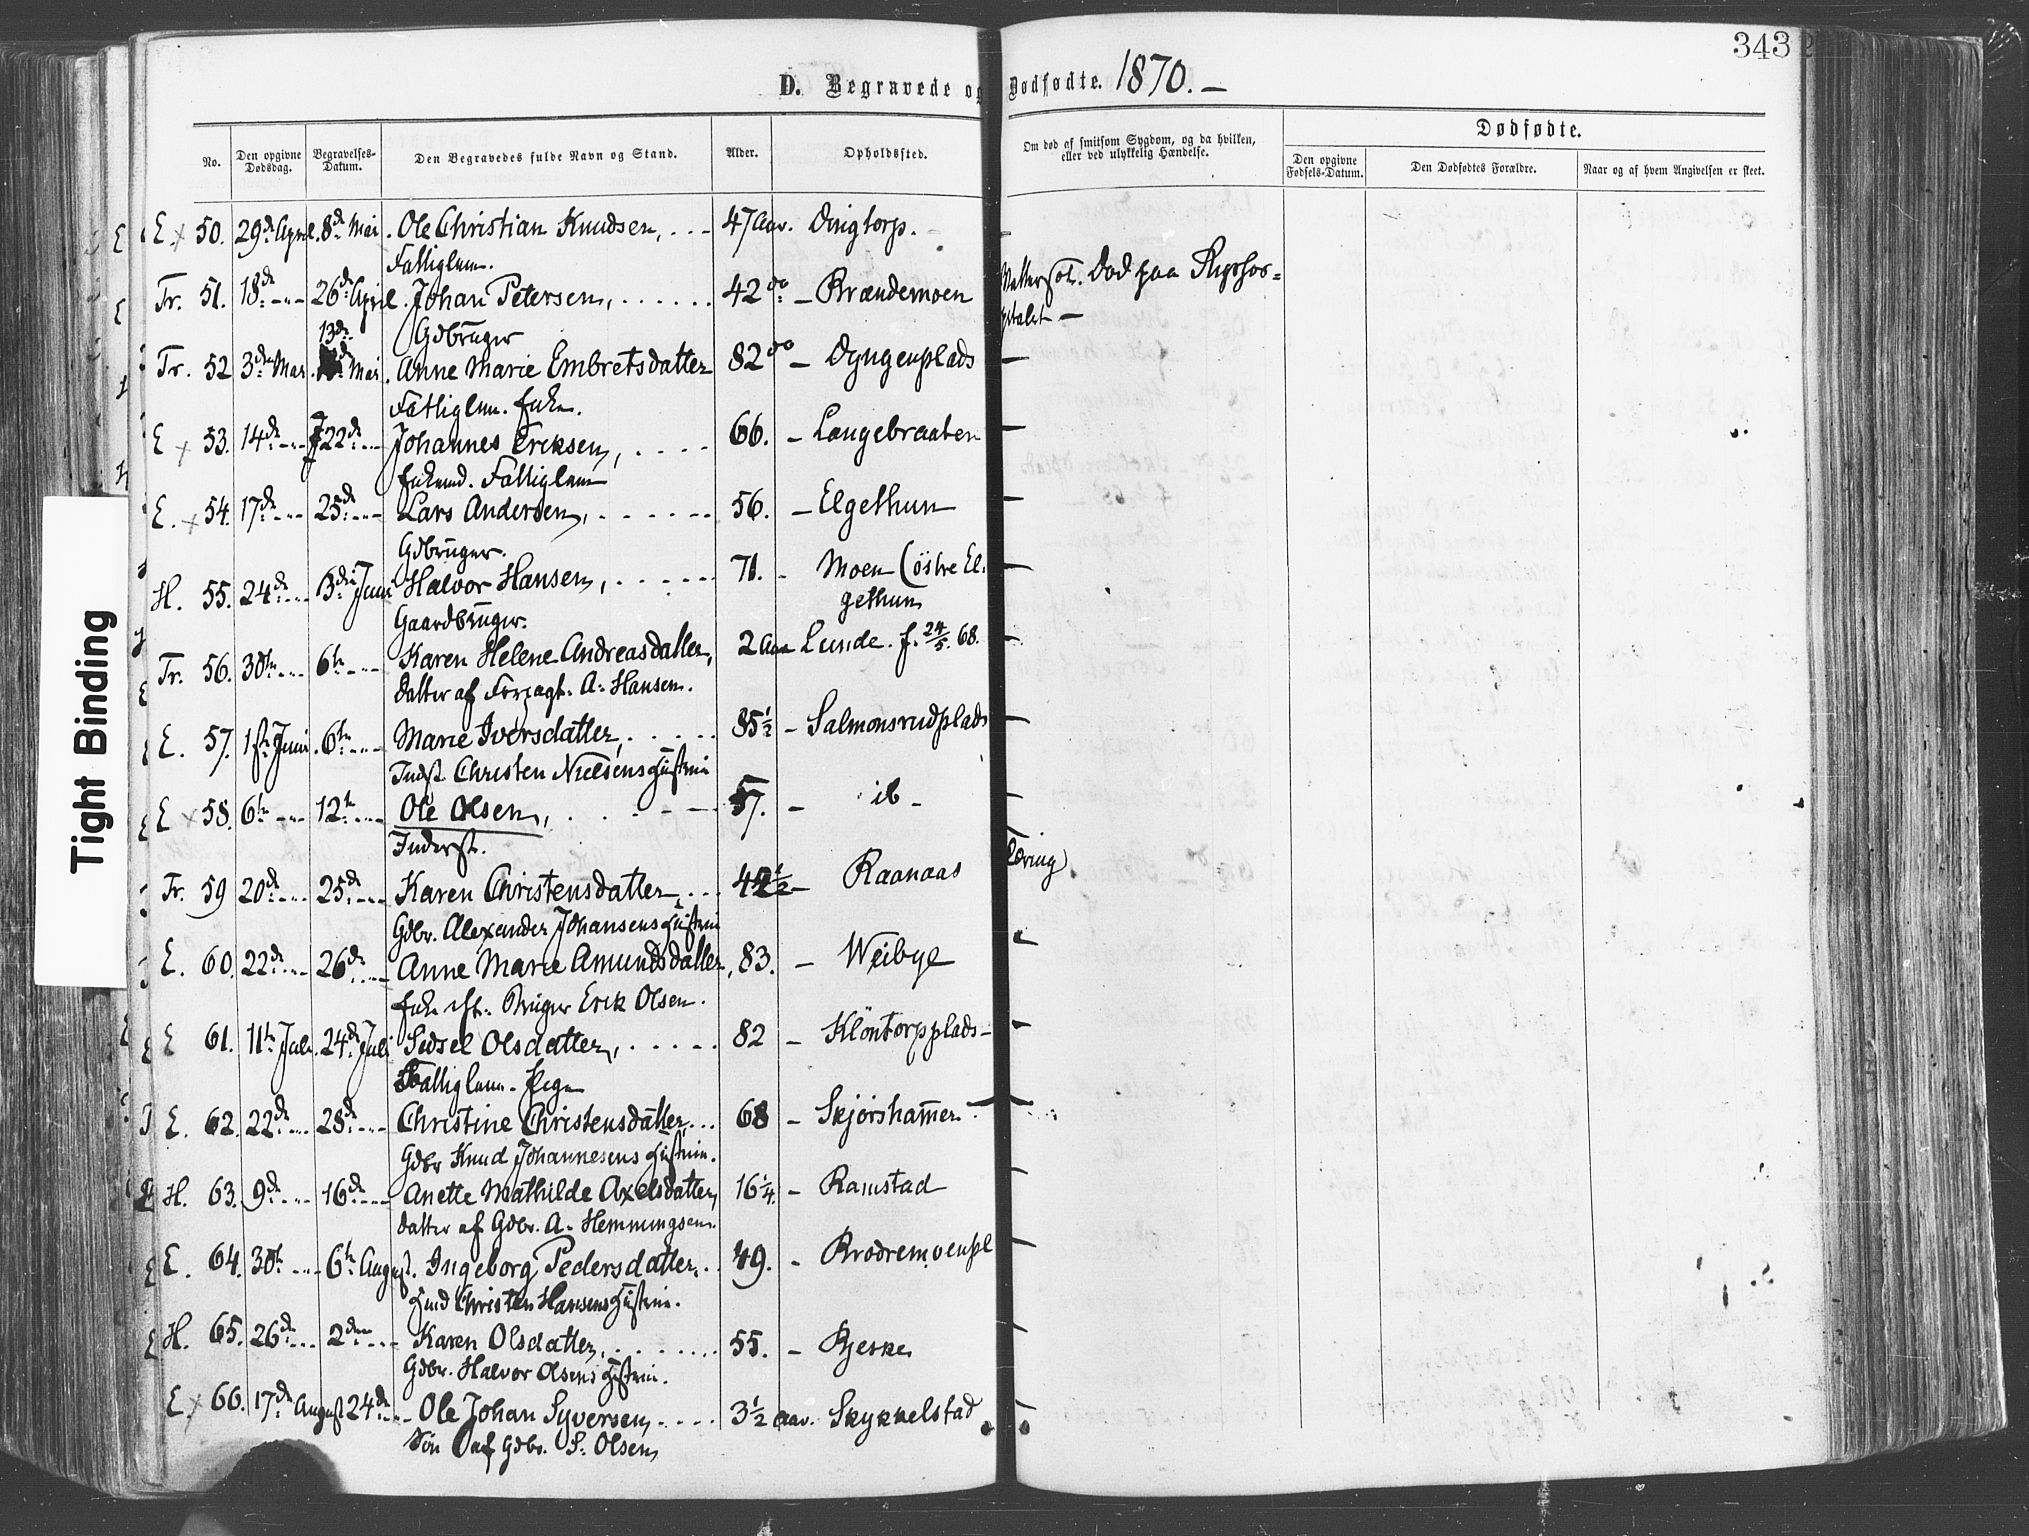 343
D. Begravede og Dødfødte. 1870. –
No.
Den opgivne Dødsdag.
Begravelses-Datum.
Den Begravedes fulde Navn og Stand.
Alder.
Opholdssted.
Om død af smitsom Sygdom, og da hvilken, eller ved ulykkelig Hændelse.
Dødfødte.
Den opgivne Fødsels-Datum.
Den Dødfødtes Forældre.
Naar og af hvem Angivelsen er skeet.
Tight Binding
E. x 50. 29de April. 8de Mai. Ole Christian Knudsen, 47 Aar. Dingtorp.
Fattiglem.
Tr. 51. 18de 26de April. Johan Petersen, 42 do – Brændemoen Død paa Rigshos-
Gdbruger
13de
Tr. 52 3die Mai Mai. Anne Marie Embretsdatter 82 do – Dyngenplads –
Fattiglem. Enke.
E x 53. 14de 22de Johannes Eriksen, 66. – Langebraaten –
Enkemd. Fattiglem
E. x 54. 17de 25de Lars Andersen, 56. – Elgethun –
Gdbruger.
H. 55. 24de 3die Juni Halvor Hansen, 71. – Moen (östre El-
gethun
Gaardbruger.
Tr. 56. 30te 6te Karen Helene Andreasdatter, 2 Aar Lunde. f. 24/5. 68. –
Datter af Forpagt. A. Hansen.
E. 57. 1ste Juni. 6te Marie Iversdatter, 85½ – Salmonsrudplads –
Indst. Christen Nielsens Hustru
E x 58. 6te 12te Ole Olsen, 57. – ib – –
Inderst.
Tr. 59 20de 25de Karen Christensdatter, 42½ – Raanaas
Gdbr. Alexander Johansens Hustru
E. 60. 22de 26de Anne Marie Amundsdatter, 83. – Weibye
Enke eft. Bruger Erik Olsen.
E 61. 11te Juli. 24de Juli Sidsel Olsdatter, 82 – Klöntorpplads –
Fattiglem. Pige
E. 62. 22de 28de Christine Christensdatter, 68 – Skjörshamer –
Gdbr Knud Johannesens Hustru.
H. 63. 9de 16de Anette Mathilde Axelsdatter, 16¼. – Ramstad –
Datter af Gdbr. A. Hemmingsen.
E. 64. 30te 6te August. Ingeborg Pedersdatter, 49. – Brodremoenpl –
Hmd Christen Hansens Hustru.
H. 65. 26de 2den Karen Olsdatter, 55. – Bjerke –
Gdbr. Halvor Olsens Hustru.
E x 66. 17de August 24de Ole Johan Syversen, 3½ Aar. Skykkelstad
Søn af Gdbr. S. Olsen